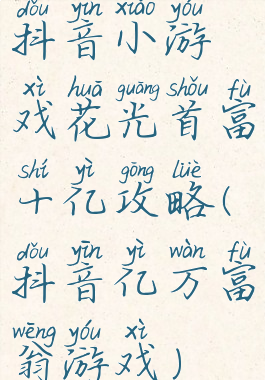 dǒu yīn xiǎo yóu
抖音小游
xì huā guāng shǒu fù
戏花光首富
shí yì gōng lüè
十亿攻略(
dǒu yīn yì wàn fù
抖音亿万富
wēng yóu xì
翁游戏)